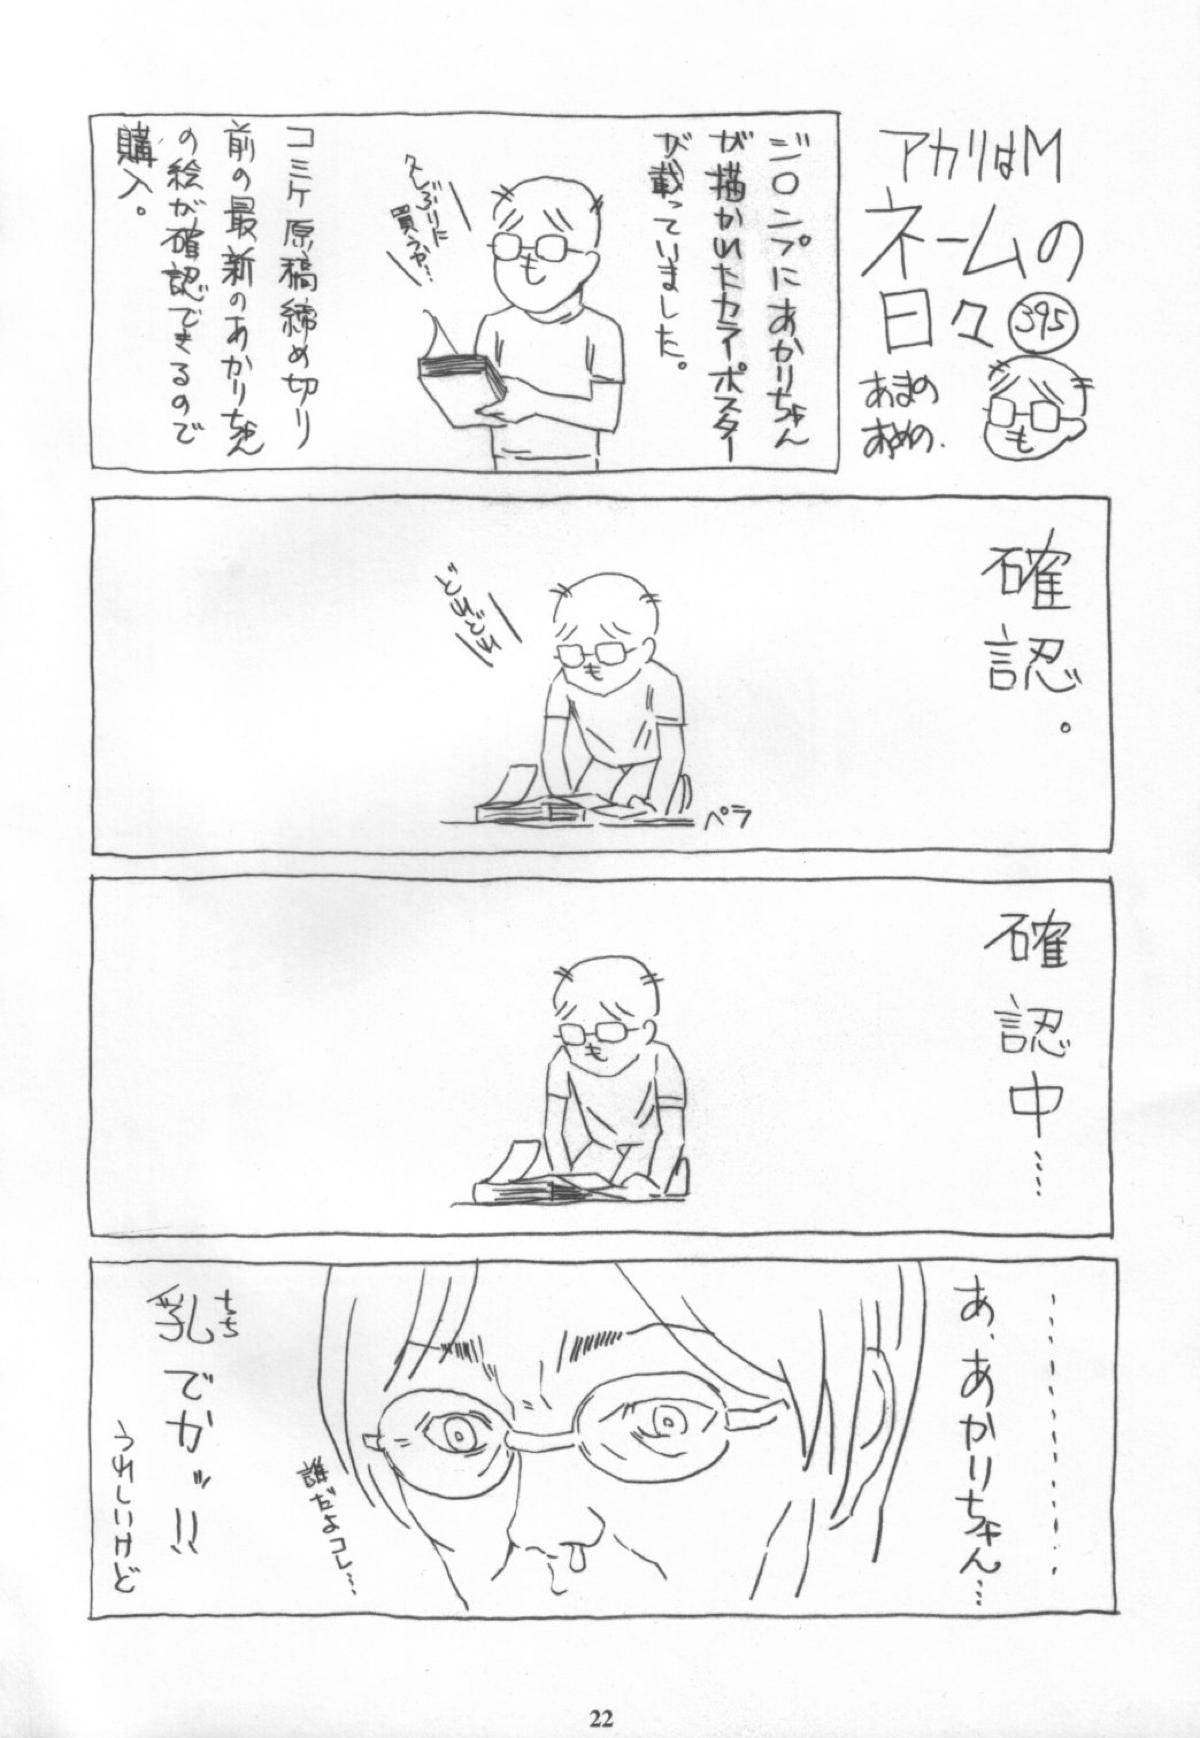 アカリはM
ネームの
日々
395
あまの
あめの.
ジロンプにあかりちゃん
が描かれたカラーポスター
が載っていました。
久しぶりに
買うか…
コミケ原稿締め切り
前の最新のあかりちゃん
の絵が確認できるので
購入。
確認。
どれどれ
ペラ
確認中……
…………
あ、あかりちゃん…
誰だよコレ…
乳でかッ!!
ちち
うれしいけど
22